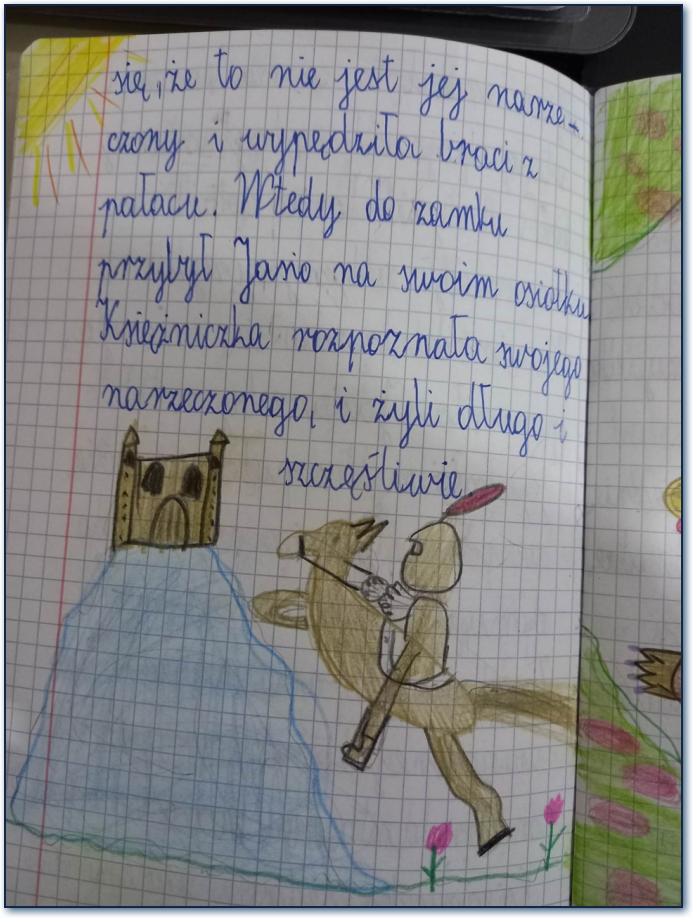 się, że to nie jest jej narze-
czony i wypędziła braci z
pałacu. Wtedy do zamku
przybył Jasio na swoim osiołku
Księżniczka rozpoznała swojego
narzeczonego, i żyli długo i
szczęśliwie.